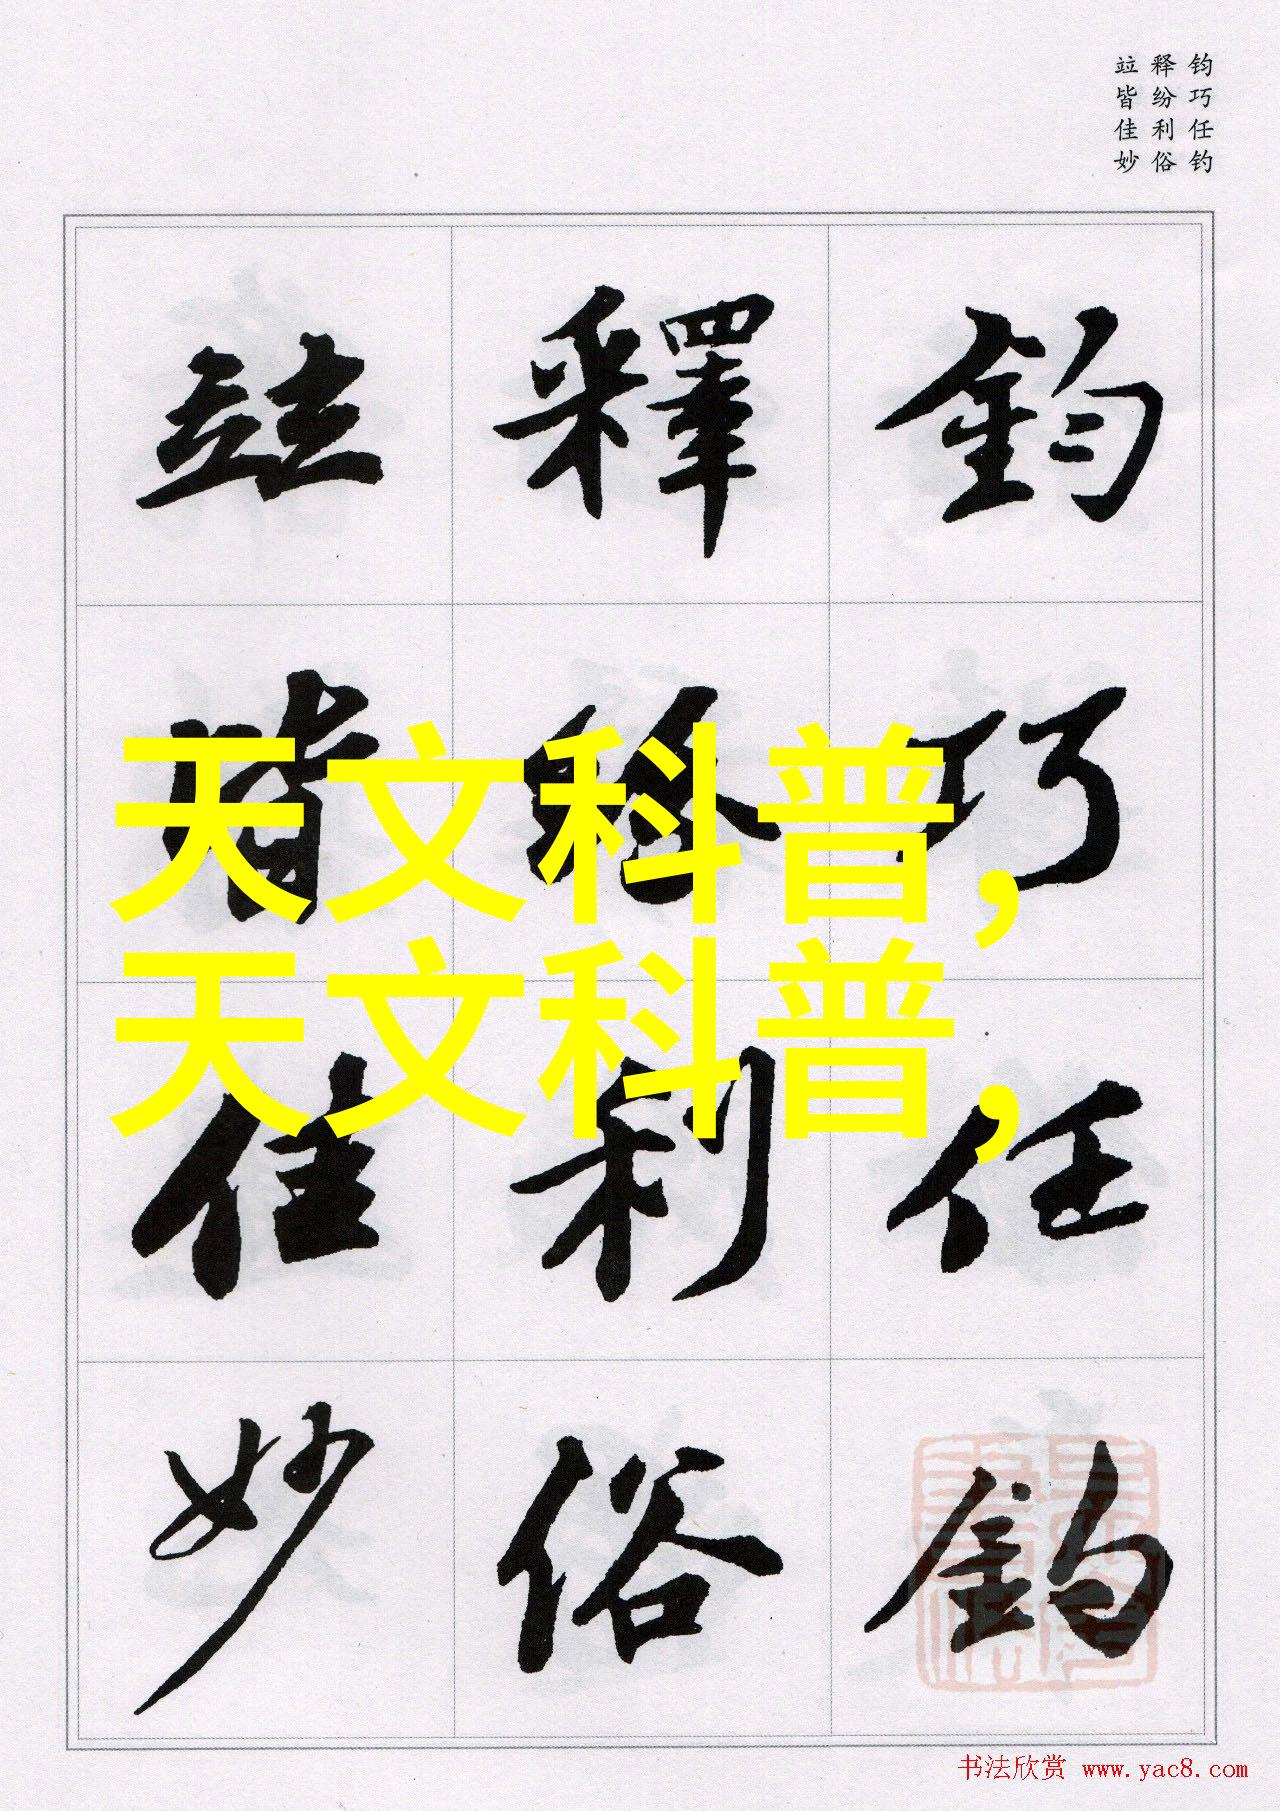 钧巧任钓
释纷利俗
竝皆佳妙
鈞巧任釣
釋紛利俗
竝皆佳妙
天文科普，
天文科普，
书法欣赏 www.yac8.com